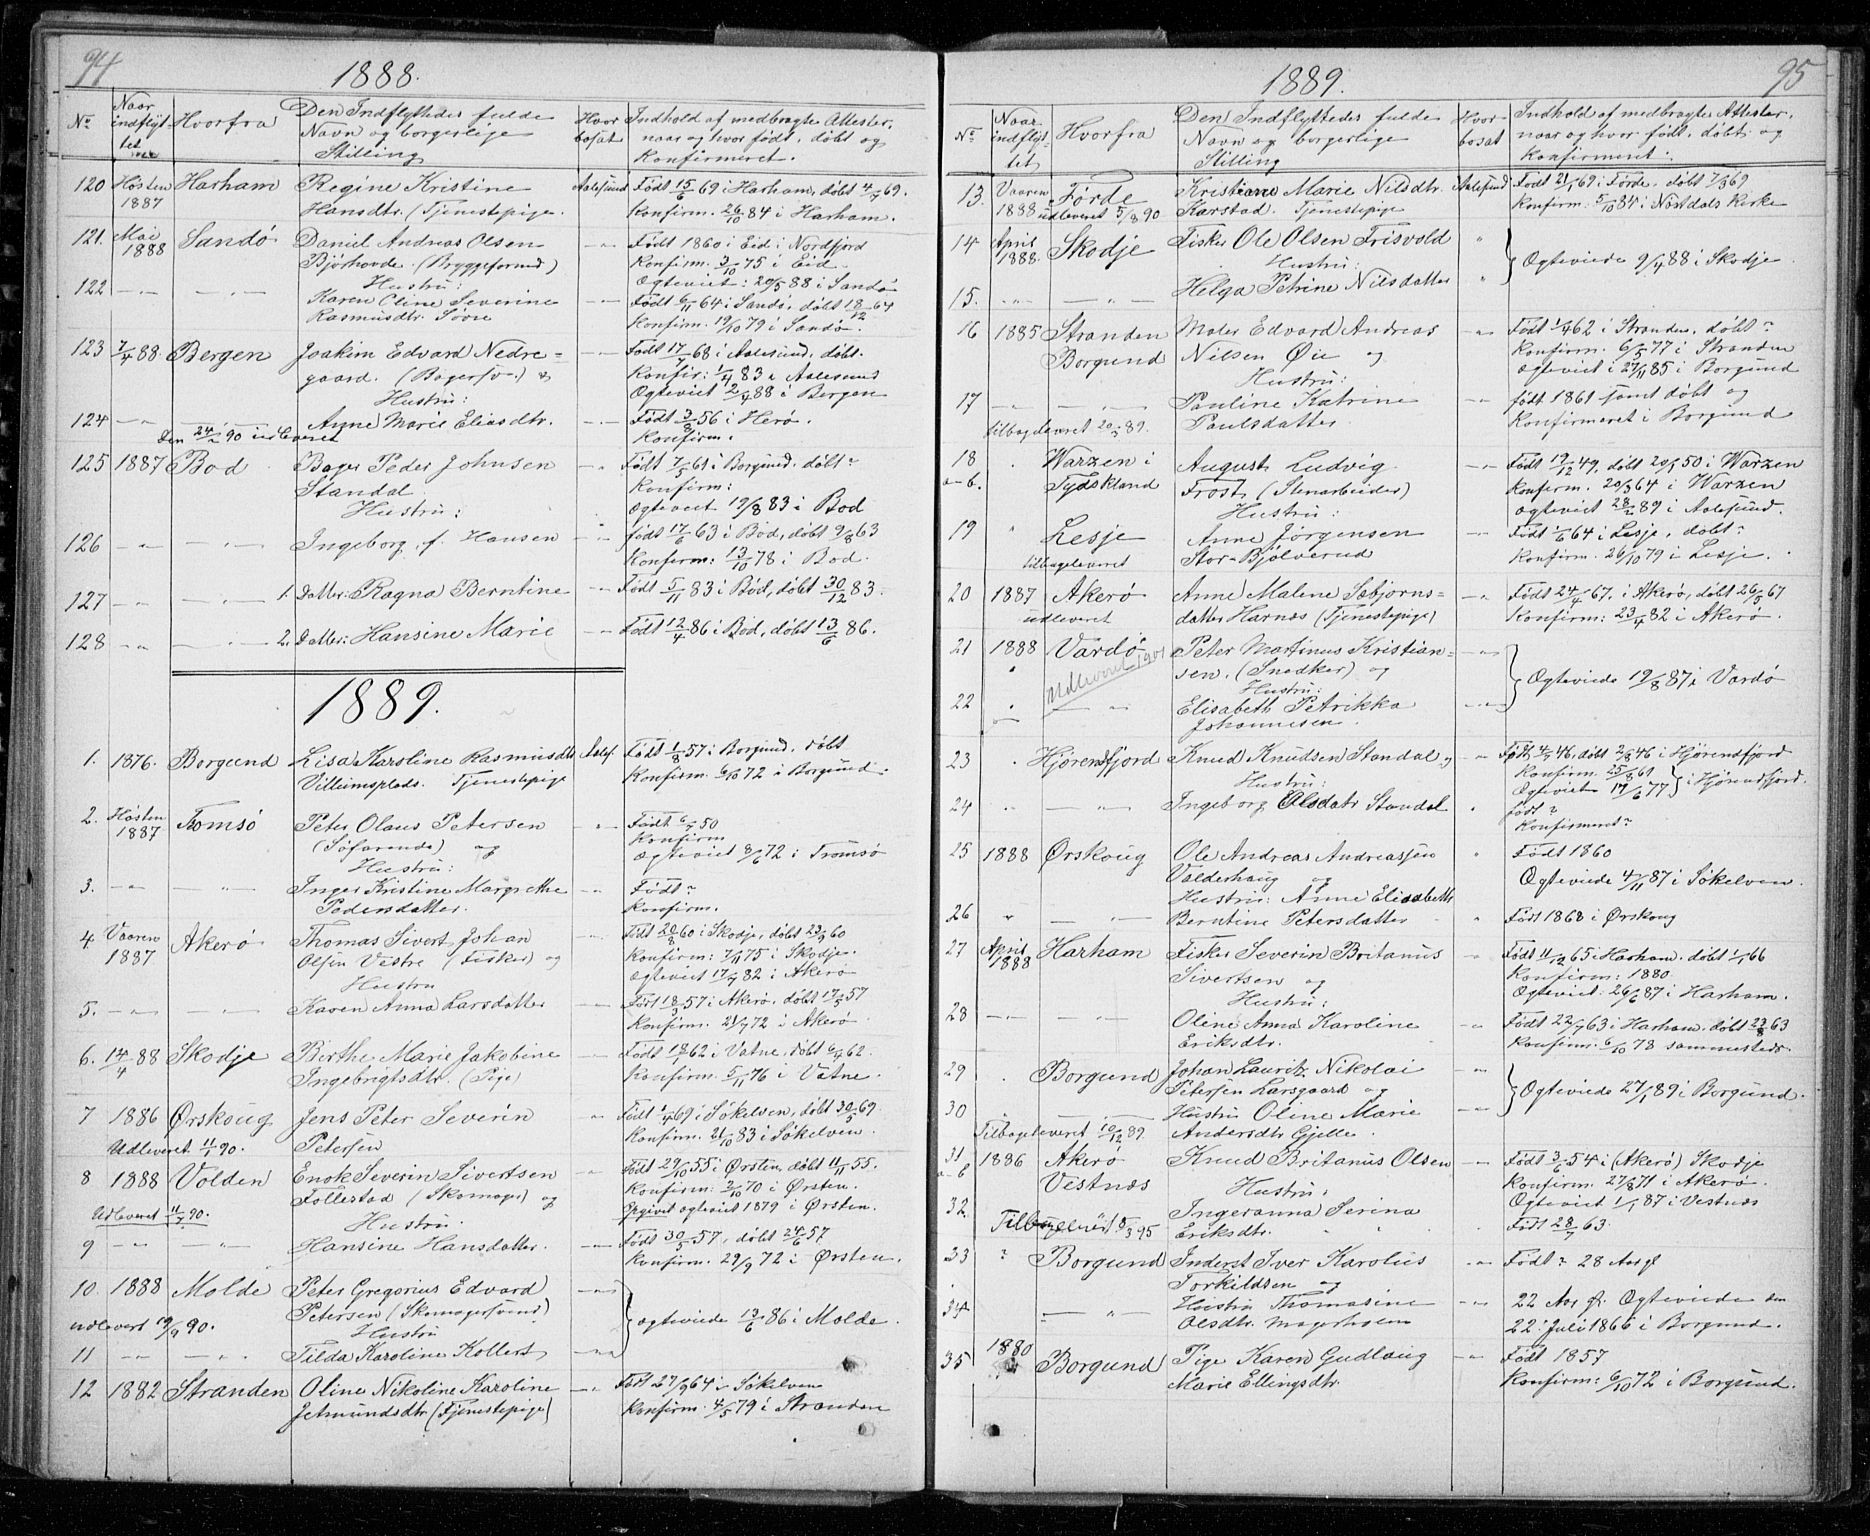 94
1888.
No Naar indflyttet Hvorfra Den Indflyttedes fulde Navn og borgerlige Stilling Hvor bosat Indhold af medbragte Attester, naar og hvor født, døbt og konfirmeret.
120 Høsten 1887 Harham Regine Kristine Aalesund Født 15/6 69 i Harham, døbt 4/7 69.
Hansdtr. (Tjenestepige. Konfirm. 26/10 84 i Harham.
121. Mai 1888 Sandø Daniel Andreas Olsen -"- Født 1860 i Eid i Nordfjord
Bjørhovde. (Bryggeformd) Konfirm. 3/10 75 i Eid.
Hustru: Ogteviet: 20/5 88 i Sandø
122 -"- -"- Karen Oline Severine -"- Født 6/11 64 i Sandø, døbt 18/12 64
Rasmusdtr. Søvre Konfirm. 19/10 79 i Sandø.
123 7/4 88. Bergen Joakim Edvard Nedre= -"- Født 17/7 68 i Aalesund, døbt.
gaard. (Bagersv.) & Konfir: 1/4 83 i Aalesund
Hustru: Ogteviet 2/4 88 i Bergen
124 -"- Anne Marie Eliasdtr. -"- Født 3/8 56 i Herø.
Den 24/2 90 udleveret Konfirm.
125 1887 Bod Bager Peder Johnsen -"- Født 7/5 61 i Borgund. døbt?
Standal Konfirm:
Hustru: Ogteviet 19/8 83 i Bod
126 -"- -"- Ingeborg, f. Hansen -"- født 17/6 63 i Bod, døbt 9/8 63
Konfirm: 13/10 78 i Bod.
127 -"- -"- 1. Datter: Ragna Berntine -"- Født 5/11 83 i Bod, døbt 30/12 83.
128 -"- -"- 2. Datter: Hansine Marie -"- Født 12/4 86 i Bod, døbt 13/6 86.
1889.
1. 1876. Borgund Lisa Karoline Rasmusdtr Aalesf. Født 1/8 57 i Borgund, døbt
Villumsplads. Tjenestepige Konfirm. 6/10 72 i Borgund.
2. Høsten 1887 Tromsø Peter Olaus Petersen -"- Født 6/7 50
(Søfarende) og Konfirm
Hustru: Ogteviet 8/6 72 i Tromsø
3. -"- -"- Inger Kristine Margrethe -"- Født?
Pedersdatter. Konfirm.
4. Vaaren 1887 Akerø Thomas Sivert Johan -"- Født 20/8 60 i Skodje, døbt 23/9 60
Olsen Vestre (Fisker) og Konfirm: 7/11 75 i Skodje.
Hustru Ogteviet 17/7 82 i Akerø
5. -"- -"- Karen Anna Larsdatter -"- Født 18/3 57 i Akerø, døbt 17/5 57
Konfirm. 21/7 72 i Akerø
6. 14/4 88 Skodje Berthe Marie Jakobine -"- Født 1862 i Vatne, døbt 6/4 62.
Ingebrigtsdtr. (Pige) Konfirm. 5/11 76 i Vatne.
7 1886 Ørskoug Jens Peter Severin -"- Født 1/4 69 i Søkelven, døbt 30/5 69.
Udleveret 11/1 90. Petersen Konfirm. 21/10 83 i Søkelven.
8 1888 Volden Enok Severin Sivertsen -"- Født 29/10 55 i Ørsten, døbt 11/11 55.
Follestad (Skomager) og Konfirm: 2/10 70 i Ørsten.
Udleveret 11/7 90. Hustru. Opgivet ogteviet 1879 i Ørsten.
9 -"- -"- Hansine Hansdatter. -"- Født 30/5 57, døbt 24/6 57
Konfirm. 29/9 72 i Ørsten.
10. 1888 Molde Peter Gregorius Edvard -"-
Udlevert 19/9 90. Petersen (Skomagersvend) Ogteviede 13/6 86 i Molde.
Hustru
11 -"- -"- Tilda Karoline Kollert -"-
12 1882 Stranden Oline Nikoline Karoline -"- Født 27/9 64 i Søkelven
Jetmundsdtr (Tjenestepige) Konfirm. 4/5 79 i Stranden
95
1889.
No Naar indflyttet Hvorfra Den Indflyttedes fulde Navn og borgerlige Stilling Hvor bosat Indhold af medbragte Attester, naar og hvor født, døbt og konfirmeret:
13. Vaaren 1888 Førde Kristianne Marie Nilsdtr. Aalesund Født 21/1 69 i Førde, døbt 7/3 69
udleveret 5/8 90 Karstad. Tjenestepige Konfirm: 5/10 84 i Nøstdals Kirke
14 April 1888. Skodje Fisker Ole Olsen Frisvold "
Hustru: Ogteviede 9/4 88 i Skodje.
15. -"- -"- Helga Petrine Nilsdatter "
16 1885 Stranden Maler Edvard Andreas -"- Født 1/4 62 i Stranden, døbt?
Borgund Nilsen Øie og Konfirm. 6/5 77 i Stranden
Hustru: Ogteviet i 27/11 85 i Borgund
17 -"- -"- Pauline Katrine -"- født 1861 samt døbt og
tilbageleveret 20/3 89. Paulsdatter Konfirmeret i Borgund
18 Warzen i August Ludvig -"- Født 19/12 49, døbt 20/1 50 i Warzen
a-b. Tydskland Frost, (Stenarbeider) Konfirm. 20/3 64 i Warzen
Hustru: Ogteviet 28/2 89 i Aalesund.
19 " Lesje Anne Jørgensen -"- Født 1/6 64 i Lesje, døbt?
tilbageleveret Stor-Bjølverud Konfirm. 26/10 79 i Lesje.
20 1887 Akerø Anne Malene Sæbjorns= -"- Født 24/4 67. i Akerø, døbt 26/5 67
udleveret datter Harnæs (Tjenestepige) Konfirm: 23/4 82 i Akerø.
21 1888 Vardø Peter Martinus Kristian= -"-
Udleveret 1901 sen. (Snedker) og Ogteviede 19/8 87 i Vardø
Hustru:
22 -"- Elisabeth Petrikka -"-
Johannesen.
23 Hjørendfjord Knud Knudsen Standal og -"- Født 4/7 46, døbt 2/8 46 i Hjørendfjord
Hustru: Konfirm. 25/8 61
Ogteviet 17/6 77 i Hjørendfjord.
24 -"- -"- Ingeborg Olsdatr Standal " født?
Konfirmeret?
25 1888 Ørskoug Ole Andreas Andreassen " Født 1860
Valderhaug og Ogteviede 4/11 87 i Søkelven.
Hustru: Anne Elisabeth
26 " -"- Berntine Petersdatter " Født 1868 i Ørskoug
27 April 1888 Harham Fisker Severin Britanus -"- Født 11/12 65 i Harham. døbt 1/1 66
Sivertsen og Konfirm: 1880
Hustru: Ogteviet: 26/6 87 i Harham.
28 -"- -"- Oline Anna Karoline -"- Født 22/7 63 i Harham. døbt 23/8 63
Eriksdtr. Konfirm. 6/10 78 sammesteds.
29 Borgund Johan Lauritz Nikolai -"-
Petersen Larsgaard og Ogteviede 27/1 89 i Borgund.
30 -"- Hustru Oline Marie -"-
Tilbageleveret 10/12 89. Andersdtr Gjelle.
31 1886 Akerø Knud Britanus Olsen -"- Født 3/6 54 i (Akerø) Skodje
a-b Vestnæs Hustru: Konfirm. 27/8 71 i Akerø.
Ogteviet 1/1 87 i Vestnæs
32. Ingeranna Serina Født 28/7 63.
Tilbagelevert 5/3 95 Eriksdtr.
33 ? Borgund Inderst Iver Karolus -"- Født? 28 Aar gl
Torkildsen og
34 -"- Hustru Thomasine -"- 22 Aar gl. Ogteviede den
Olsdtr. Magerholm 22. Juli 1866 i Borgund.
35 1880 Borgund Pige Karen Gudlaug -"- Født 1857
Marie Ellingsdtr. Konfirm: 6/10 72 i Borgund.